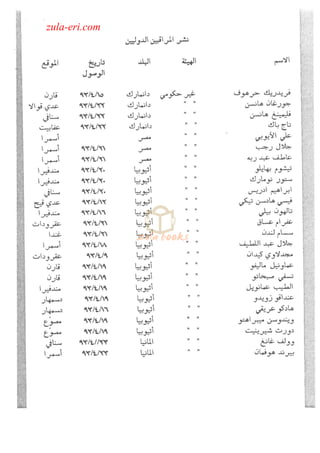 zula-eri.com
نشر المراقبين الدوليين
الاسم الهيئة البلد تاريخ الوصول الموقع
فريدريك حرهوف غير حكومي دانمارك ٩٣/٤/١٥ قارن
جورغان هانسن " " دانمارك ٩٣/٤/٢٢ عدي قوالا
فليمينغ هانسن " " دانمارك ٩٣/٤/٢٢ سنافي
تاج باك " " دانمارك ٩٣/٤/٢٢ عفابيت
علي الأيوبي " " مصر أسمرا
جلال رجب " " مصر ٩٣/٤/٢١ أسمرا
عاطف عبد ربه " " مصر ٩٣/٤/٢١ أسمرا
تيشوم بهايلو " " أثيوبيا ٩٣/٤/٢٠ مندفيرا
ستور نومارك " " أثيوبيا ٩٣/٤/٢٠ مندفيرا
ابراهيم ادريس " " أثيوبيا ٩٣/٤/٢٠ سنافي
فيسي هادسن تيكي " " أثيوبيا ٩٣/٤/١٢ عدي قيح
تالهون بيلي " " أثيوبيا ٩٣/٤/١٦ مندفيرا
عفرام عساق " " أثيوبيا ٩٣/٤/٢١ عقرودات
سسام لندن " " أثيوبيا ٩٣/٤/٢١ غندا
جلال عبد اللطيف " " أثيوبيا ٩٣/٤/١٨ أسمرا
مجدلاوي كيدان " " أثيوبيا ٩٣/٤/٩ عقرودات
عمانويل ماليفو " " أثيوبيا ٩٣/٤/١٩ قارن
تسفي ميحاتو " " أثيوبيا ٩٣/٤/١٩ قارن
الطيب عمانويل " " أثيوبيا ٩٣/٤/١٩ مندفيرا
عنداقو زويدو " " أثيوبيا ٩٣/٤/١٩ دسمهار
هادكو عريقي " " أثيوبيا ٩٣/٤/١٦ دسمهار
ويندوسن ميبراهتو " " أثيوبيا ٩٣/٤/١٩ مصوع
دورث شيرينيت " " أثيوبيا ٩٣/٤/١٩ مصوع
وولف غانغ " " المانيا ٩٣/٤/٢٣ سنافي
بيرند هوفمان " " المانيا ٩٣/٤/٢٣ أسمرا